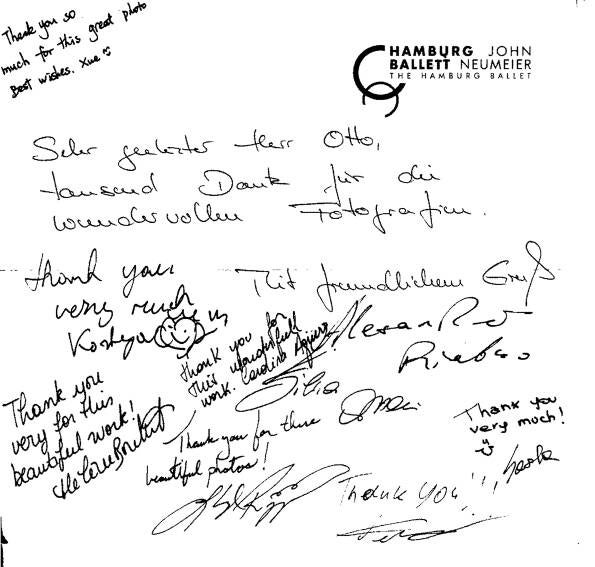 Thank you so
much for this great photo
Best wishes. Xue
HAMBURG JOHN
BALLETT NEUMEIER
THE HAMBURG BALLET
Sehr geehrter Herr Otto,
tausend Dank für die
wundervollen Fotografien.
Mit freundlichem Gruß
Alexandre Riabko
thank you
very much
Kostya
thank you for
this wonderfull
work. Carolina Aguero
Silvia
Thank you
very for this
beautiful work!
Hélène Bouchet
Thank you for these
beautiful photos!
Thank you
very much!
Sasha
Thank you!!!